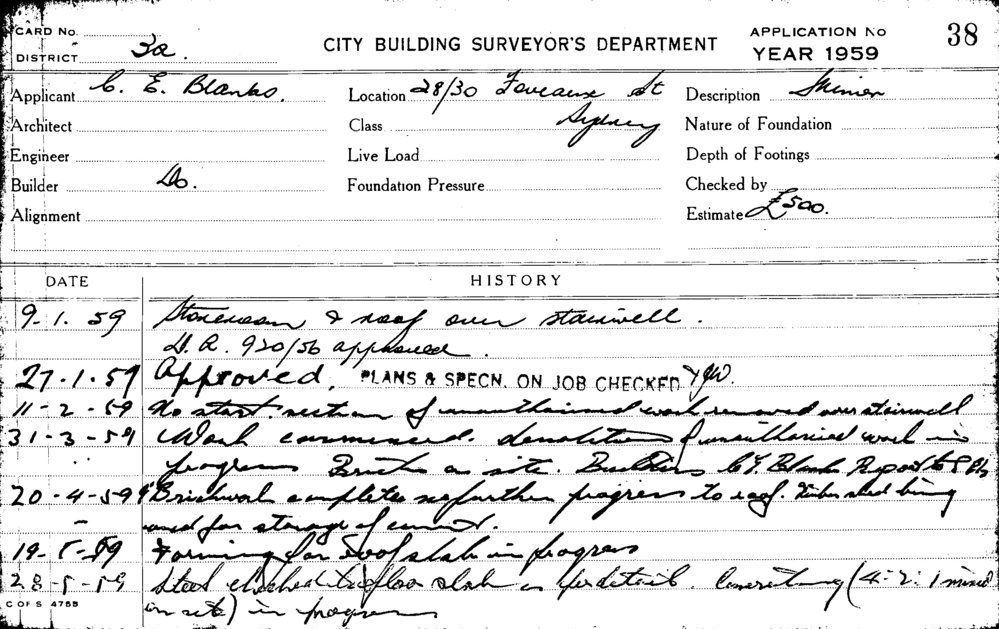 CARD No.
DISTRICT 3a.
CITY BUILDING SURVEYOR'S DEPARTMENT
APPLICATION No 38
YEAR 1959
Applicant C. E. Blanks. Location 28/30 Foveaux St Description Skinner
Architect Class Sydney Nature of Foundation
Engineer Live Load Depth of Footings
Builder Do. Foundation Pressure Checked by
Alignment Estimate £500.
DATE HISTORY
9.1.59 Storeroom & roof over stairwell.
D.A. 920/56 approved.
27.1.59 Approved. PLANS & SPECN. ON JOB CHECKED
11-2-59 No start. section of unauthorised work removed over stairwell
31-3-59 Work commenced. demolition of unauthorised work in
progress Bricks on site. Builders Blanks
20-4-59 Brickwork completed no further progress to roof. Timber shed being
used for storage of cement.
19-5-59 Forming for roof slab in progress
28-5-59 Steel checked to floor slab as per detail. Concreting (4:2:1 mixed
on site) in progress
C OF S 4755